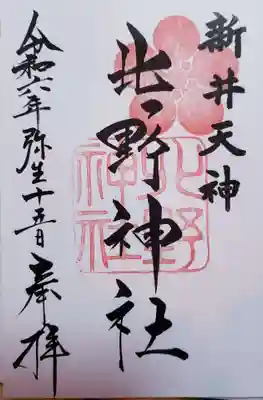 新井天神
北野神社
令和六年弥生十五日奉拝
北野
神社